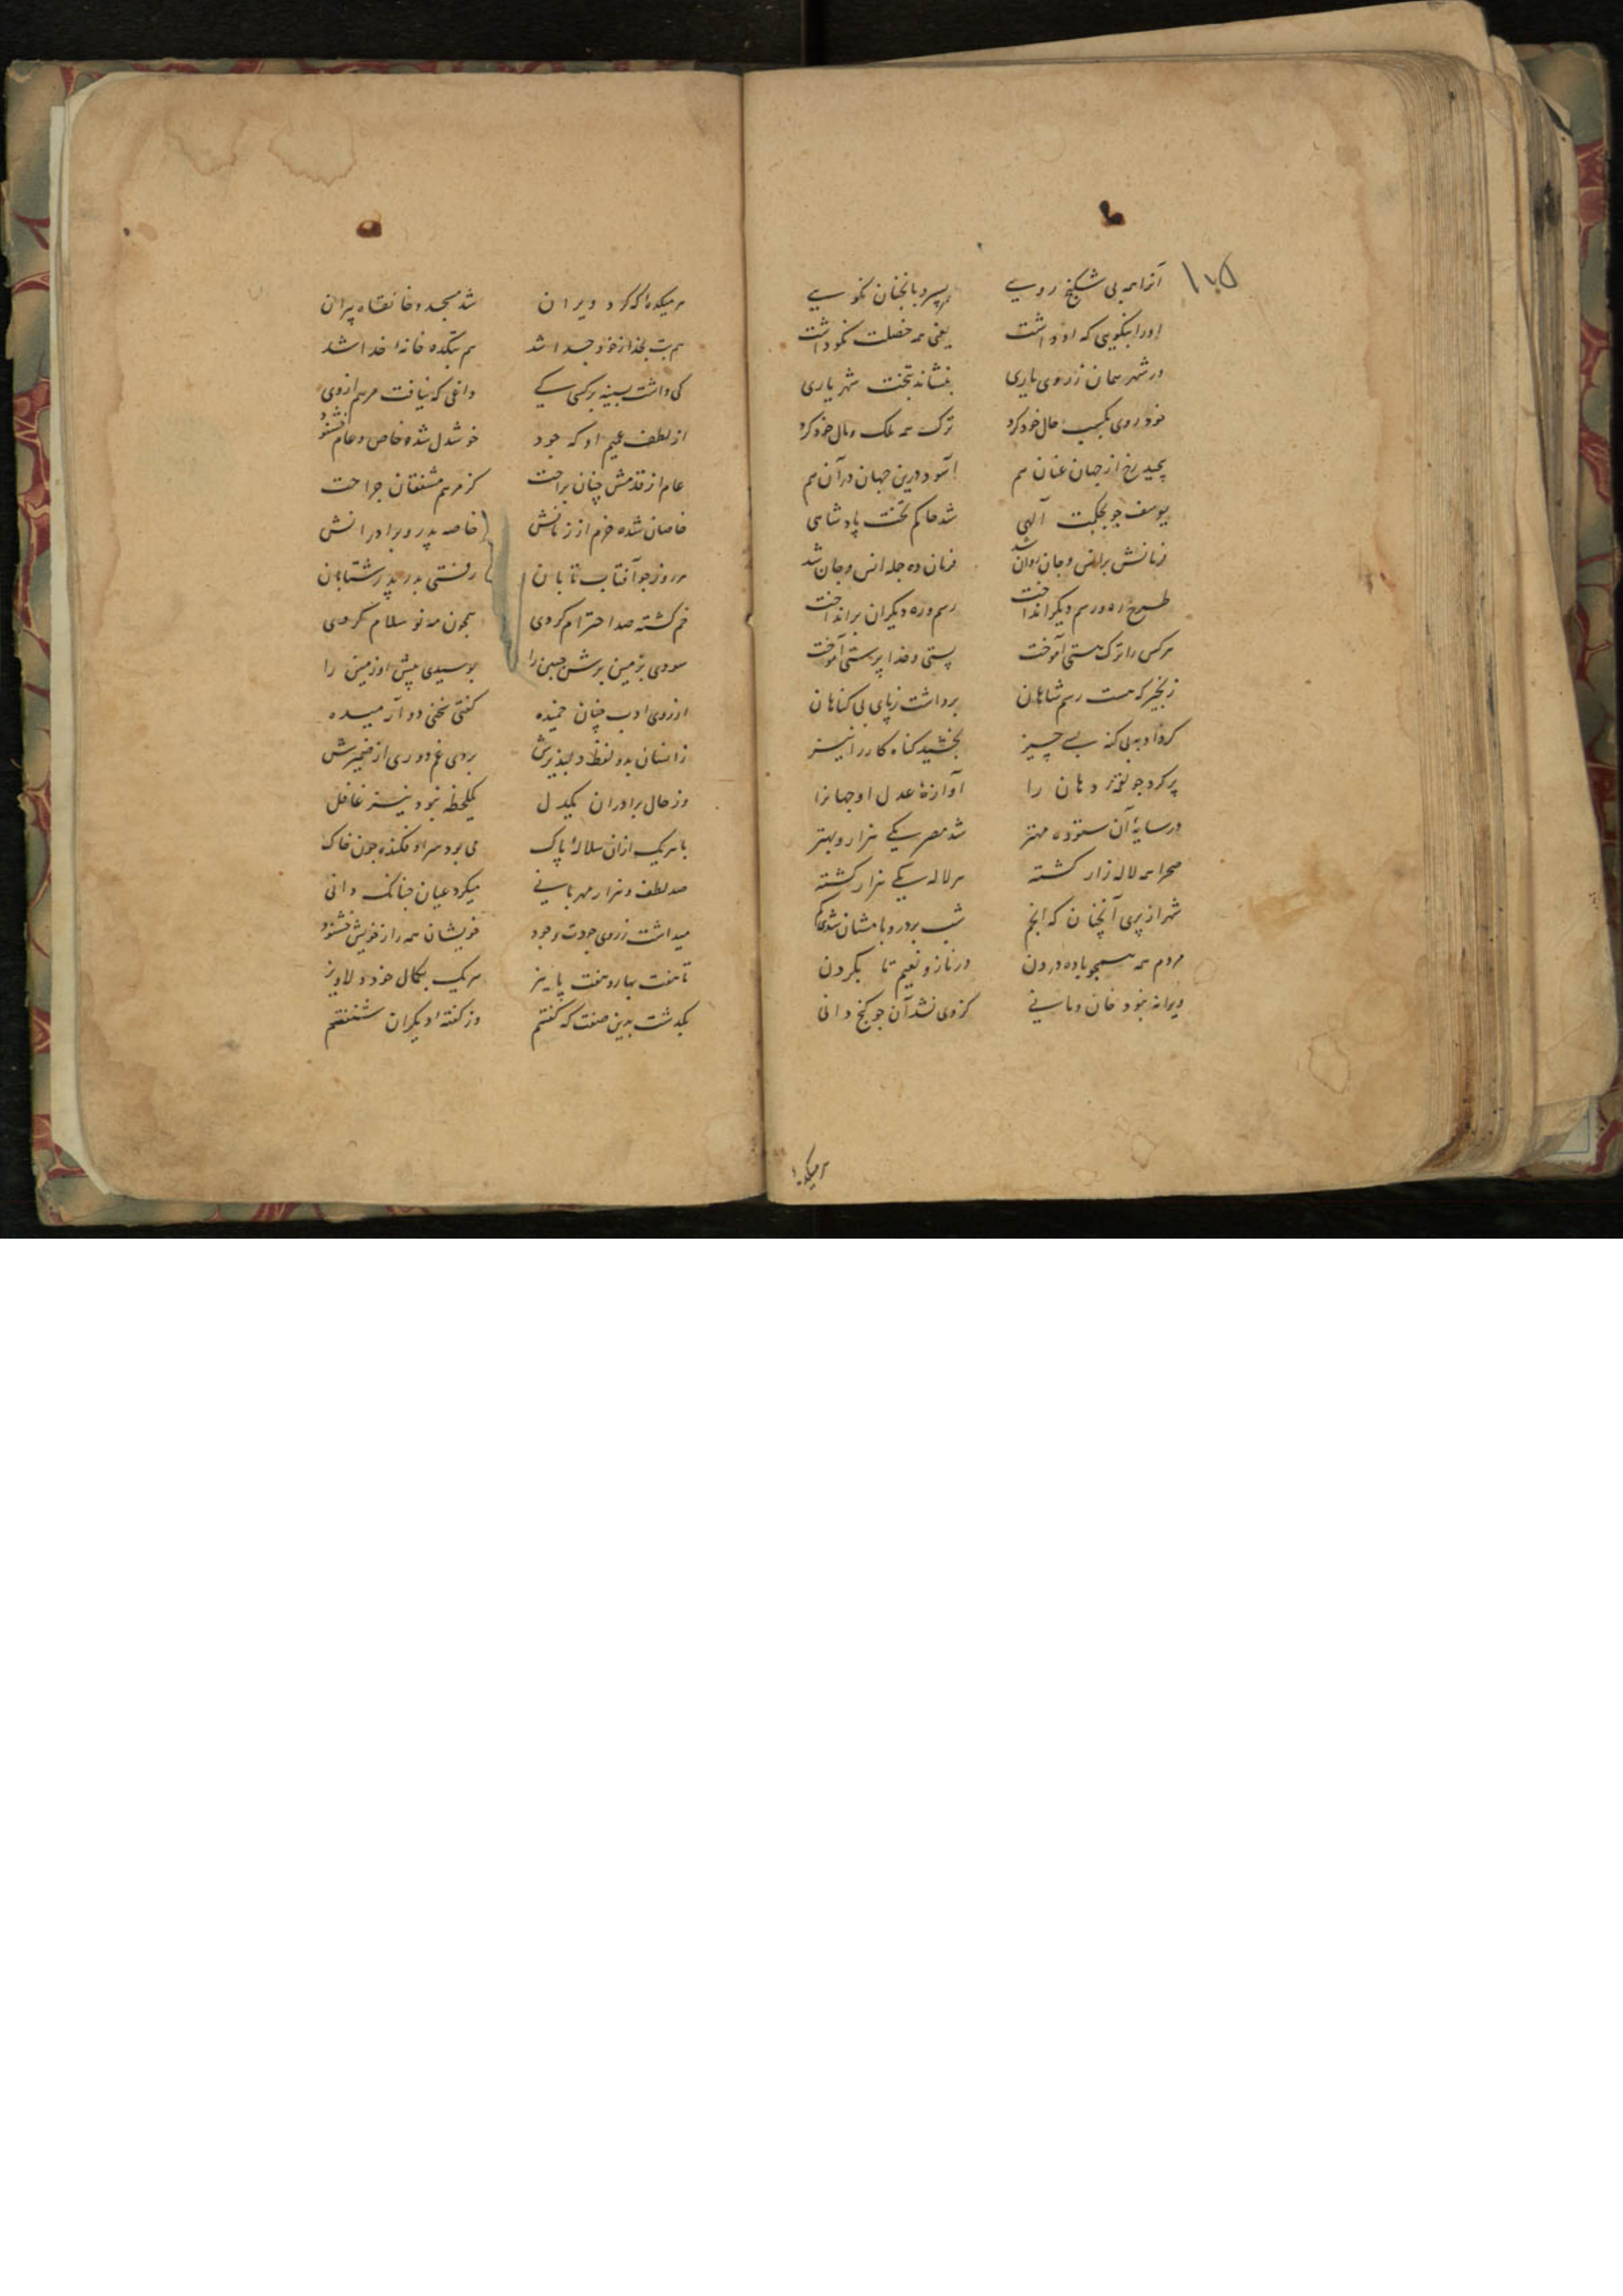 ۱۰۵
آنرا همه بی شکنج رویی بسپرد بانچنان نکویی
او را بنکویی که او داشت یعنی همه خصلت نکو داشت
در شهر همان ز روی یاری بنشاند بتخت شهریاری
خود روی بکسب حال خود کرد ترک همه ملک و مال خود کرد
پیچید رخ از جهان عنان هم آسود درین جهان در آن هم
یوسف چو بحکمت آلهی شد حاکم تخت پادشاهی
فرمانش بر انس و جان روان شد فرمان ده جمله انس و جان شد
طرح ره و رسم دیگر انداخت رسم و ره دیگران برانداخت
هرکس را ترک مستی آموخت پستی و خدا پرستی آموخت
زنجیر که هست رسم شاهان برداشت ز پای بی کناهان
کرد او به بی کنه بسی چیز بخشید کناه کار را نیز
پر کرد چو لقمه دهان را آوازهٔ عدل او جهانرا
در سایهٔ آن ستوده مهتر شد مصر یکی هزار و بهتر
صحرا همه لاله زار کشته هر لاله یکی هزار کشته
شهر از پری آنچنان که انجم شب بر در و بامشان شدی کم
مردم همه همچو باده در دن در ناز و نعیم تا بکردن
ویرانه نبود خان و مانی کز وی نشد آن چو کنج دانی
هر میکده را
هر میکده را که کرد ویران شد مسجد و خانقاه پیران
هم بت بخدا ز خود جدا شد هم بتکده خانهٔ خدا شد
کی داشت بسینه هر کسی کی داغی که نیافت مرهم از وی
از لطف عمیم او که جود خوشدل شده خاص و عام خشنود
عام از قدمش چنان براحت کز مرهم مشفقان جراحت
خاصان شده خرم از زمانش خاصه پدر و برادرانش
هر روز چو آفتاب تابان رفتی بدر پدر شتابان
خم کشته صد احترام کردی همچون مه نو سلام کردی
سودی بزمین برش جبین را بوسیدی پیش او زمین را
از روی ادب چنان خمیده کفتی سخنی دو آرمیده
زانسان بدو لفظ دلپذیرش بردی غم دوری از ضمیرش
وز حال برادران یکدل یکلحظه نبود نیز غافل
با هریک ازان سلالهٔ پاک می بود سر او فکنده چون خاک
صد لطف و هزار مهربانی میکرد عیان چنانک دانی
میداشت ز روی جودت و جود خویشان همه را ز خویش خشنود
تا هفت بهار و هفت پاییز هریک بکمال خود دلاویز
بکذشت بدین صفت که کفتم وز کفتهٔ دیکران شنفتم